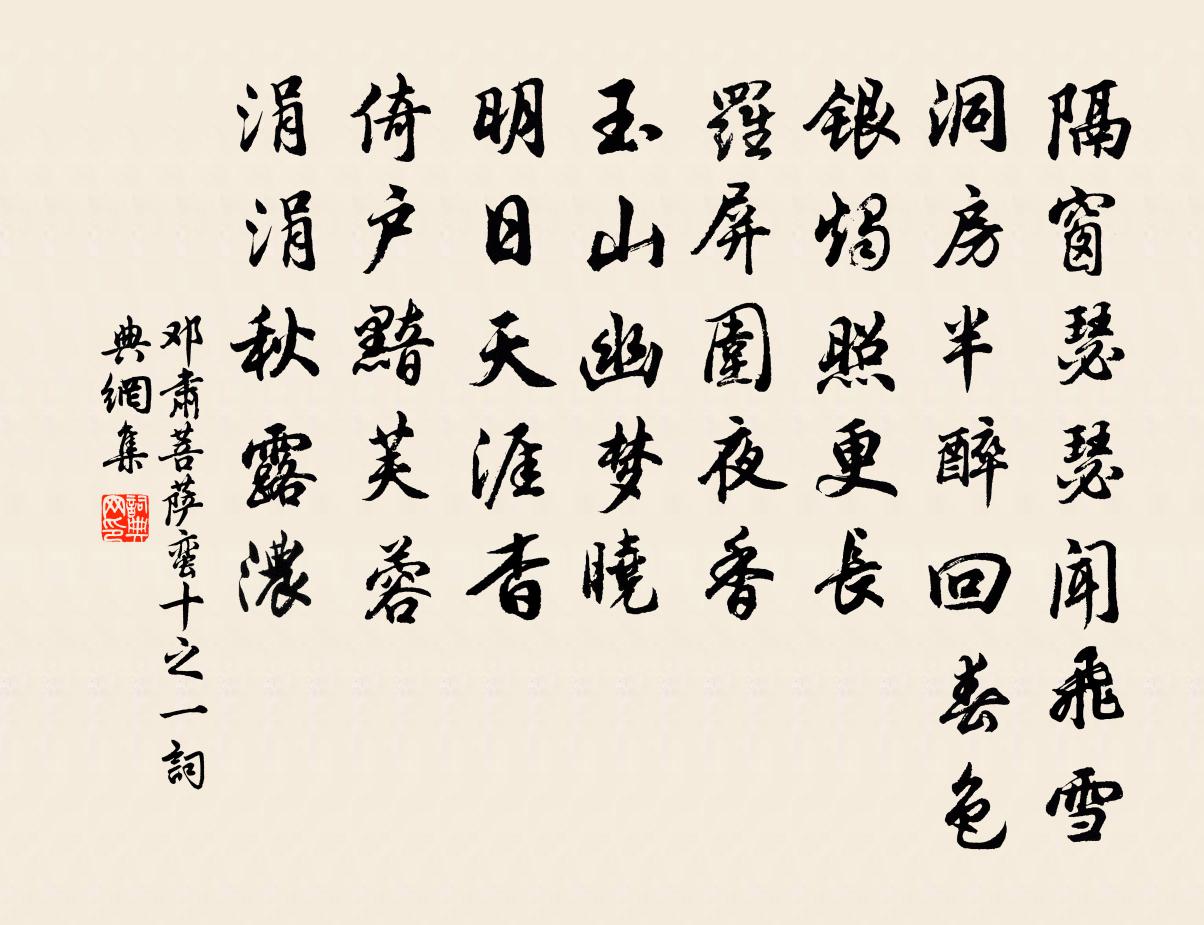 隔窗瑟瑟闻飛雪
洞房半醉回春色
银燭照更長
羅屏圍夜香
玉山幽梦曉
明日天涯杳
倚户黯芙蓉
涓涓秋露濃
邓肃菩萨蛮十之一詞
典網集
詞典
网印